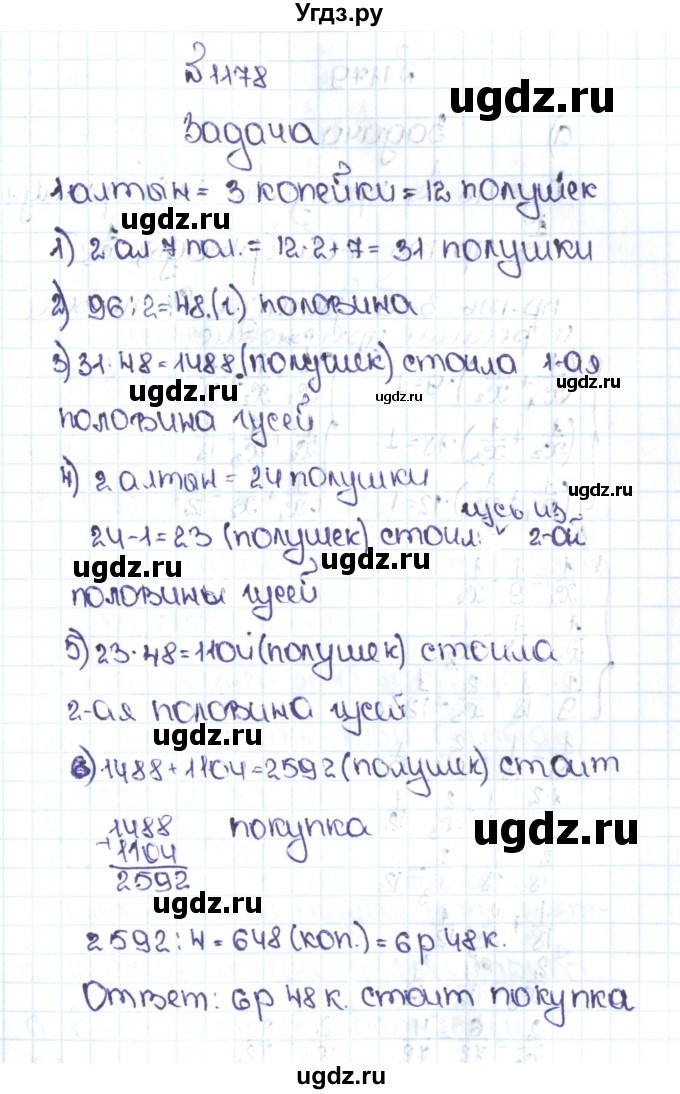 Угдз.ру
№1178
ugdz.ru
Задача
1 алтын = 3 копейки = 12 полушек
ugdz.ru
1) 2 ал 7 пол. = 12·2+7 = 31 полушки
ugdz.ru
2) 96:2=48.(г.) половина
3) 31·48=1488 (полушек) стоила 1-ая
ugdz.ru ugdz.ru
половина гусей
4) 2 алтын = 24 полушки
ugdz.ru
гусь из
24-1=23 (полушек) стоил 2-ой
ugdz.ru ugdz.ru
половины гусей
5) 23·48=1104 (полушек) стоила
2-ая половина гусей
ugdz.ru
6) 1488+1104=2592 (полушек) стоит
1488 покупка
ugdz.ru
+1104
2592
ugdz.ru
2592:4=648 (коп.) = 6р 48к.
Ответ: 6р 48к. стоит покупка
ugdz.ru